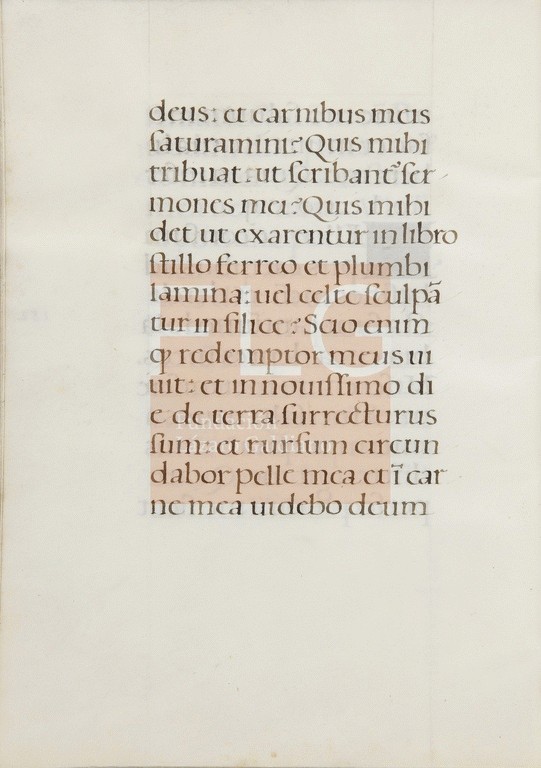 deus: et carnibus meis
ſaturamini? Quis mihi
tribuat: ut ſcribant᷒ ſer
mones mei? Quis mihi
det ut exarentur in libro
ſtillo ferreo et plumbi
lamina: uel celte ſculpā
tur in ſilice? Scio enim
ꝙ redemptor meus ui
uit: et in nouiſſimo di
e de terra ſurrecturus
ſum: et rurſum circun
dabor pelle mea et ī car
ne mea uidebo deum
FLG
Fundación
Lázaro Galdiano